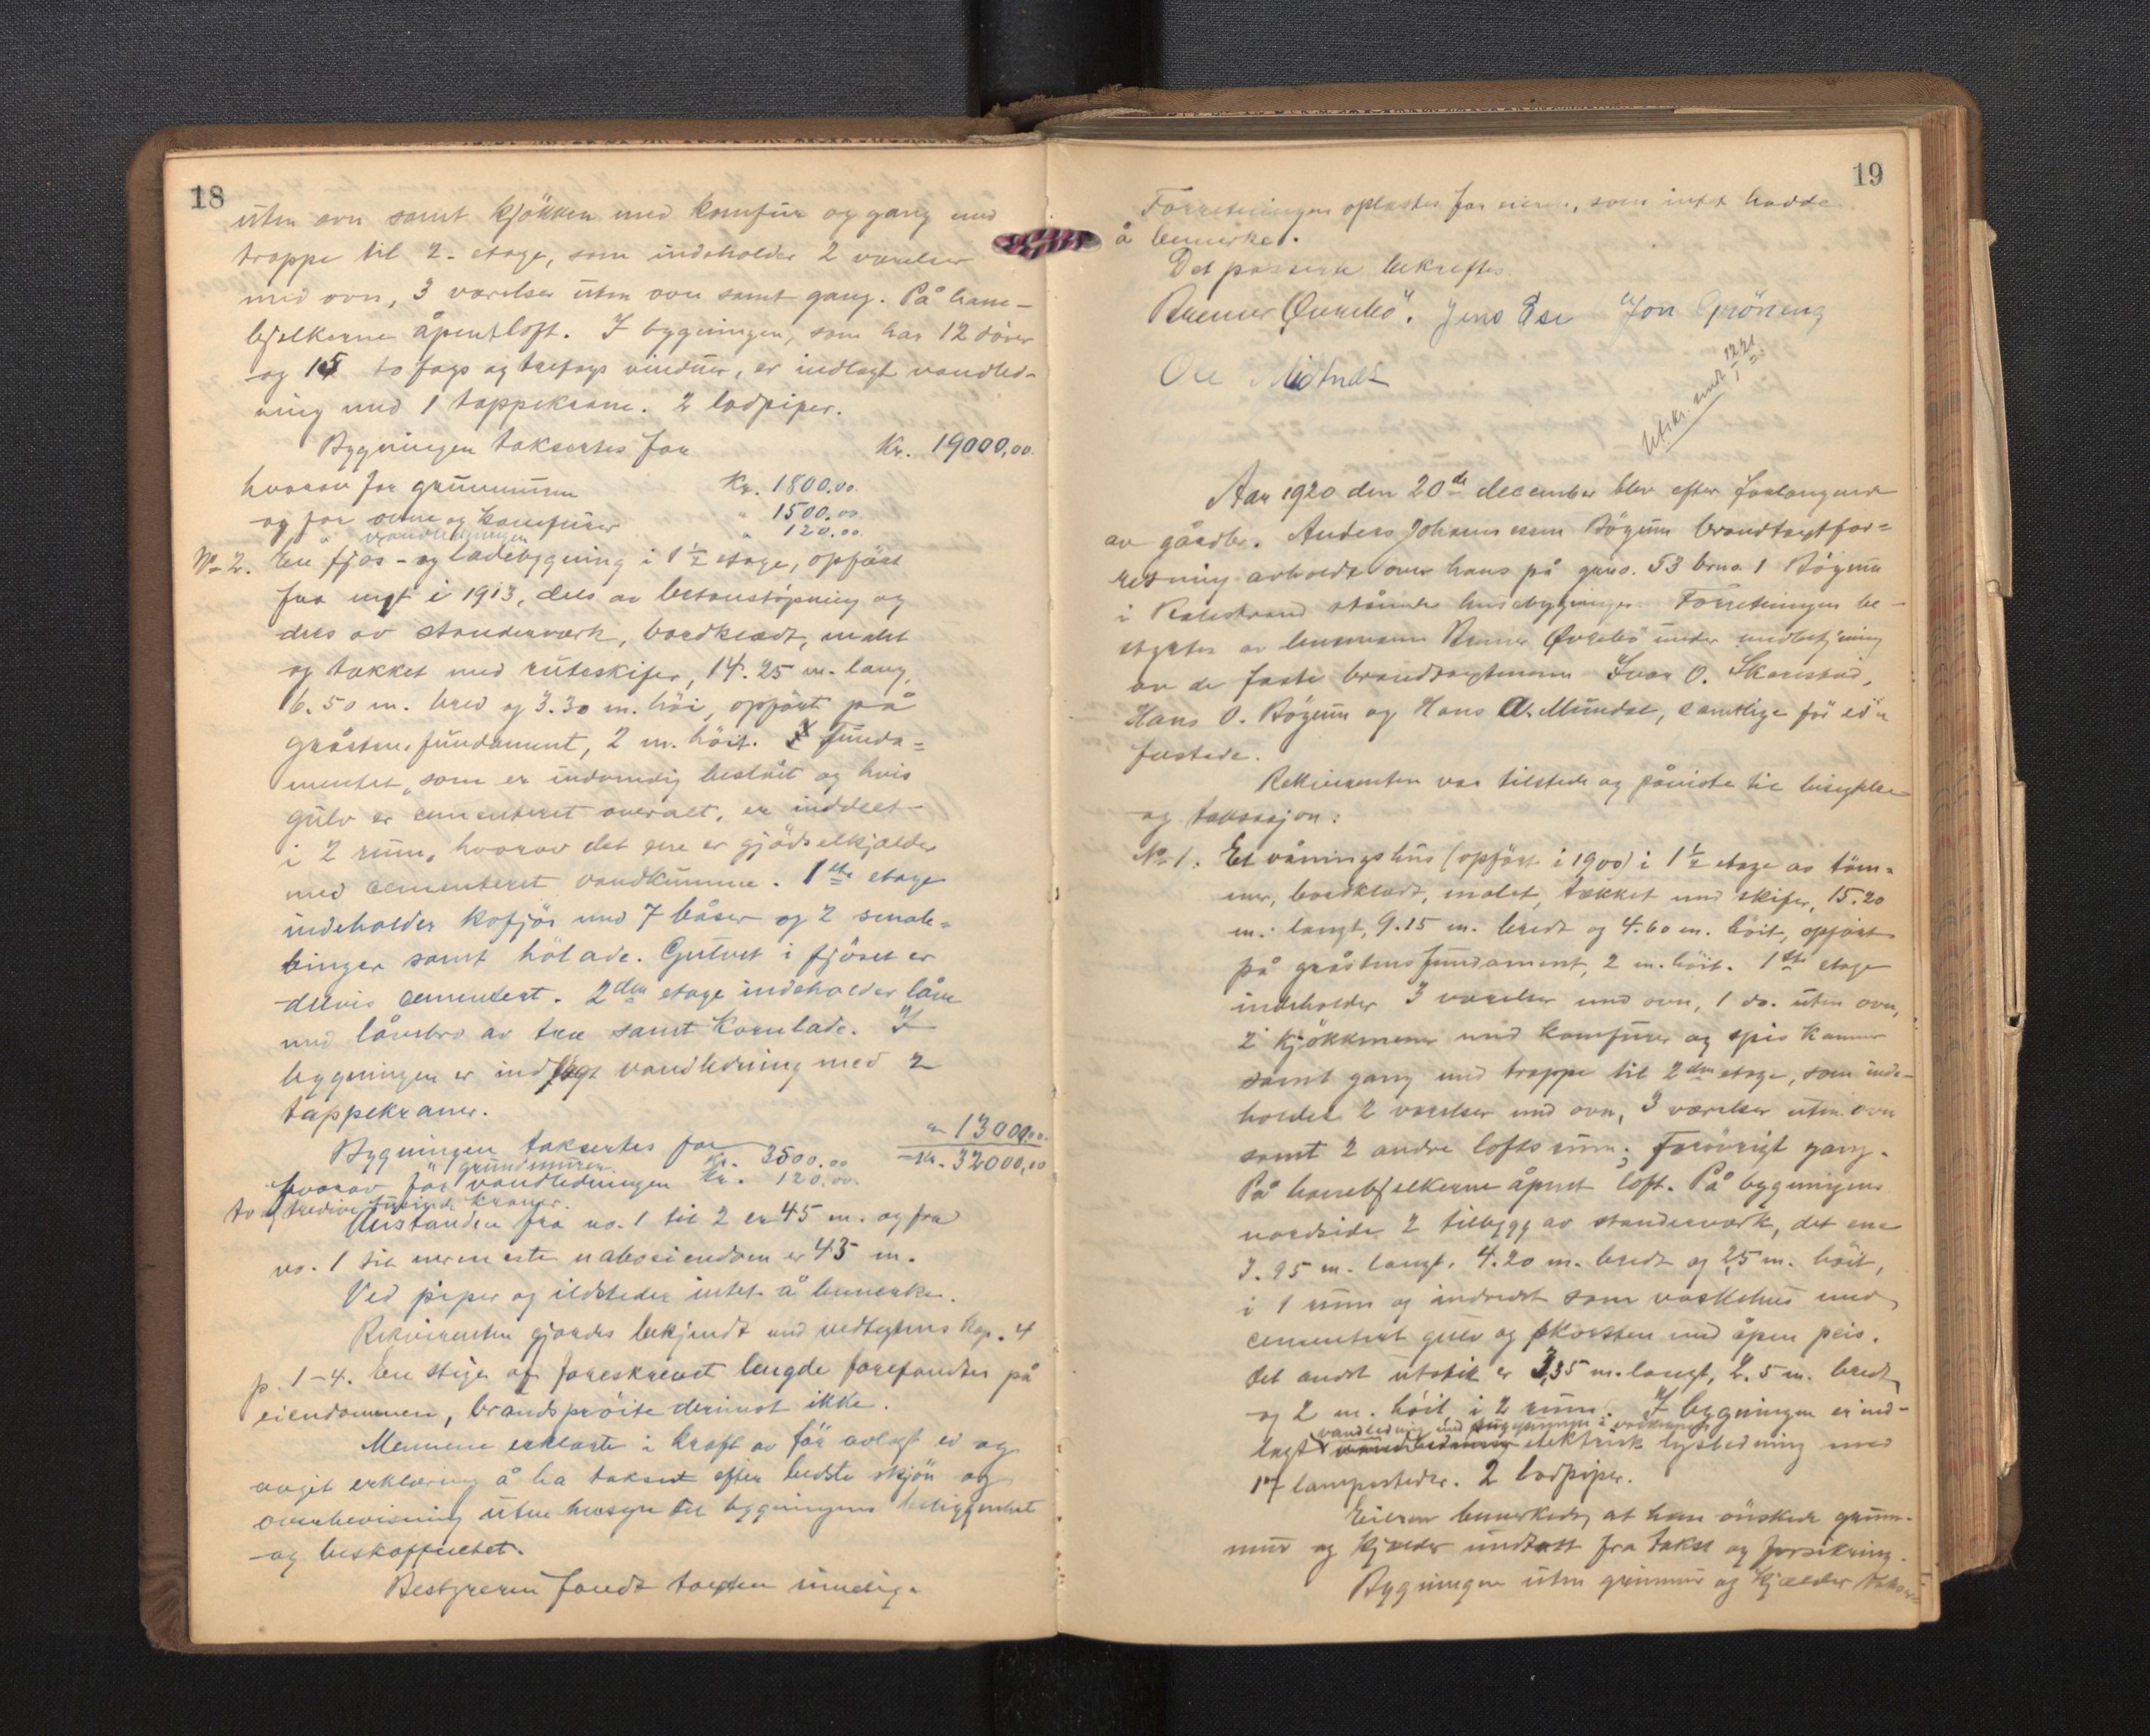 18
uten ovn samt kjökken med komfur og gang med
trappe til 2. etage, som indeholder 2 værelser
med ovn, 3 værelser uten ovn samt gang. På hane-
bjelkerne åpent loft. I bygningen, som har 12 dörer
og 15 to fags og trefags vinduer, er indlagt vandled-
ning med 1 tappekrane. 2 lodpiper.
Bygningen taksertes for Kr. 19000,00.
hvorav for grunnmuren Kr. 1800.00.
og for ovne og komfurer " 1500.00
" " vandledningen " 120.00.
No 2. En fjös- og ladebygning i 1 1/2 etage, opfört
fra nyt i 1913, dels av betonstöpning og
dels av standerverk, bordklædt, malet
og tækket med ruteskifer, 14.25 m. lang,
6.50 m. bred og 3.30 m. höi, opfört på
gråstensfundament, 2 m. höit. Funda-
mentet, som er indvendig beslåt og hvis
gulv er cementeret overalt, er inddelt
i 2 rum, hvorav det ene er gjödselkjælder
med cementeret vandkumme. 1ste etage
indeholder kofjös med 7 båser og 2 smale-
binger samt hölade. Gulvet i fjöset er
delvis cementert. 2den etage indeholder låve
med låvebro av træ samt kornlade. I
bygningen er indlagt vandledning med 2
tappekraner.
Bygningen taksertes for " 13000,00.
Kr. 32000,00
hvorav for grundmuren Kr. 3500.00
" vandledningen Kr. 120.00.
to og tredive tusinde kroner.
Avstanden fra no. 1 til 2 er 45 m. og fra
no. 1 til nærmeste naboeiendom er 43 m.
Ved piper og ildsteder intet å bemerke.
Rekvirenten gjordes bekjendt med vedtægtens kap. 4
p. 1-4. En stige af foreskrevet lengde forefandtes på
eiendommen, brandspröite derimot ikke.
Mennene erklærte i kraft av för avlagt ed og
avgit erklæring å ha taksert efter bedste skjön og
overbevisning uten hensyn til bygningens beliggenhet
og beskaffenhet.
Bestyreren fandt taxten rimelig.
19
Forretningen oplæstes for eieren, som intet hadde
å bemerke.
Det passerte bekreftes.
Brenner Øvrebö. Jens Ese Jon Gröneng
Ole Midtnes
Utskr. sendt 12/1 21
Aar 1920 den 20de december blev efter forlangende
av gårdbr. Anders Johannessen Bögum brandtaxtfor-
retning avholdt over hans på gno. 53 brno. 1 Bögum
i Balestrand stående husebygninger. Forretningen be-
styrtes av lensmann Brenner Øvrebö under medbetjening
av de faste brandtaxtmenn Ivar O. Skarestad,
Hans O. Bögum og Hans A. Mundal, samtlige för ed-
fæstede.
Rekvirenten var tilstede og påviste til besigtelse
og taxasjon:
No 1. Et våningshus (opfört i 1900) i 1 1/2 etage av töm-
mer, bordklædt, malet, tækket med skifer, 15.20
m. langt, 9.15 m. bredt og 4.60 m. höit, opfört
på gråstensfundament, 2 m. höit. 1ste etage
indeholder 3 værelser med ovn, 1 do. uten ovn,
2 kjökkener med komfurer og spiskammer
samt gang med trappe til 2den etage, som inde-
holder 2 værelser med ovn, 3 værelser uten ovn
samt 2 andre loftsrum; forövrigt gang.
På hanebjelkerne åpent loft. På bygningens
nordside 2 tilbygg av standerverk, det ene
3.95 m. langt, 4.20 m. bredt og 2,5 m. höit,
i 1 rum og indredet som vaskehus med
cementert gulv og skorsten med åpen peis.
Det andet utstik er 3,35 m. langt, 2.5 m. bredt
og 2 m. höit i 2 rum. I bygningen er ind-
vandledning med
lagt vandledning elektrisk lysledning med
17 lampesteder. 2 lodpiper.
Eieren bemerkede, at han önskede grunn-
mur og kjælder undtatt fra takst og forsikring.
Bygningen uten grunmur og kjælder takser=